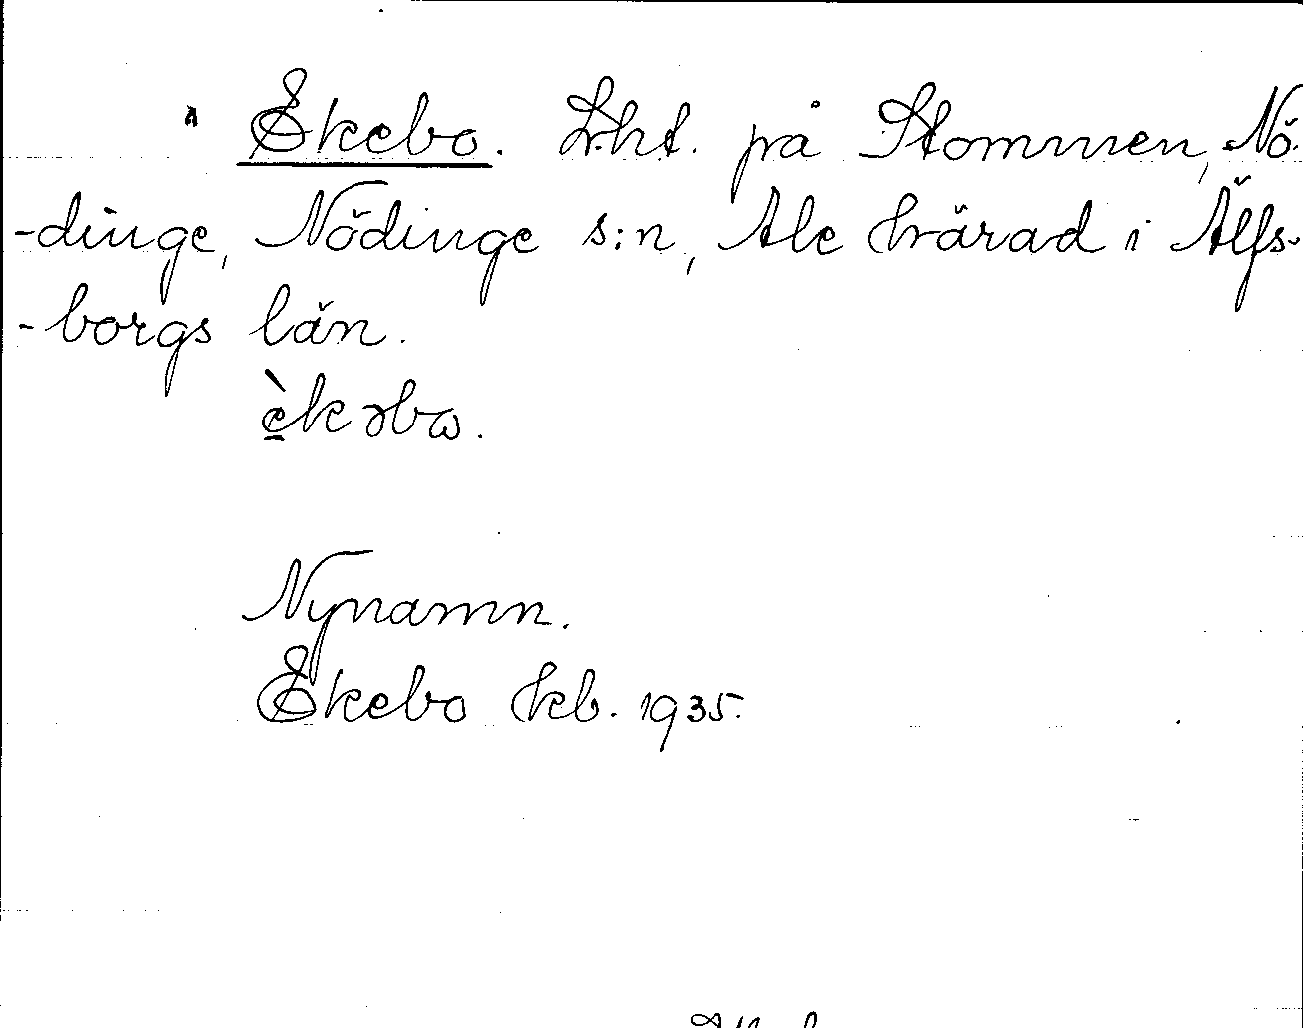 Ekebo. Lht. på Stommen, Nö-
-dinge, Nödinge s:n, Ale härad i Älfs-
-borgs län.
è̱kəbω.
Nynamn.
Ekebo kb. 1935.